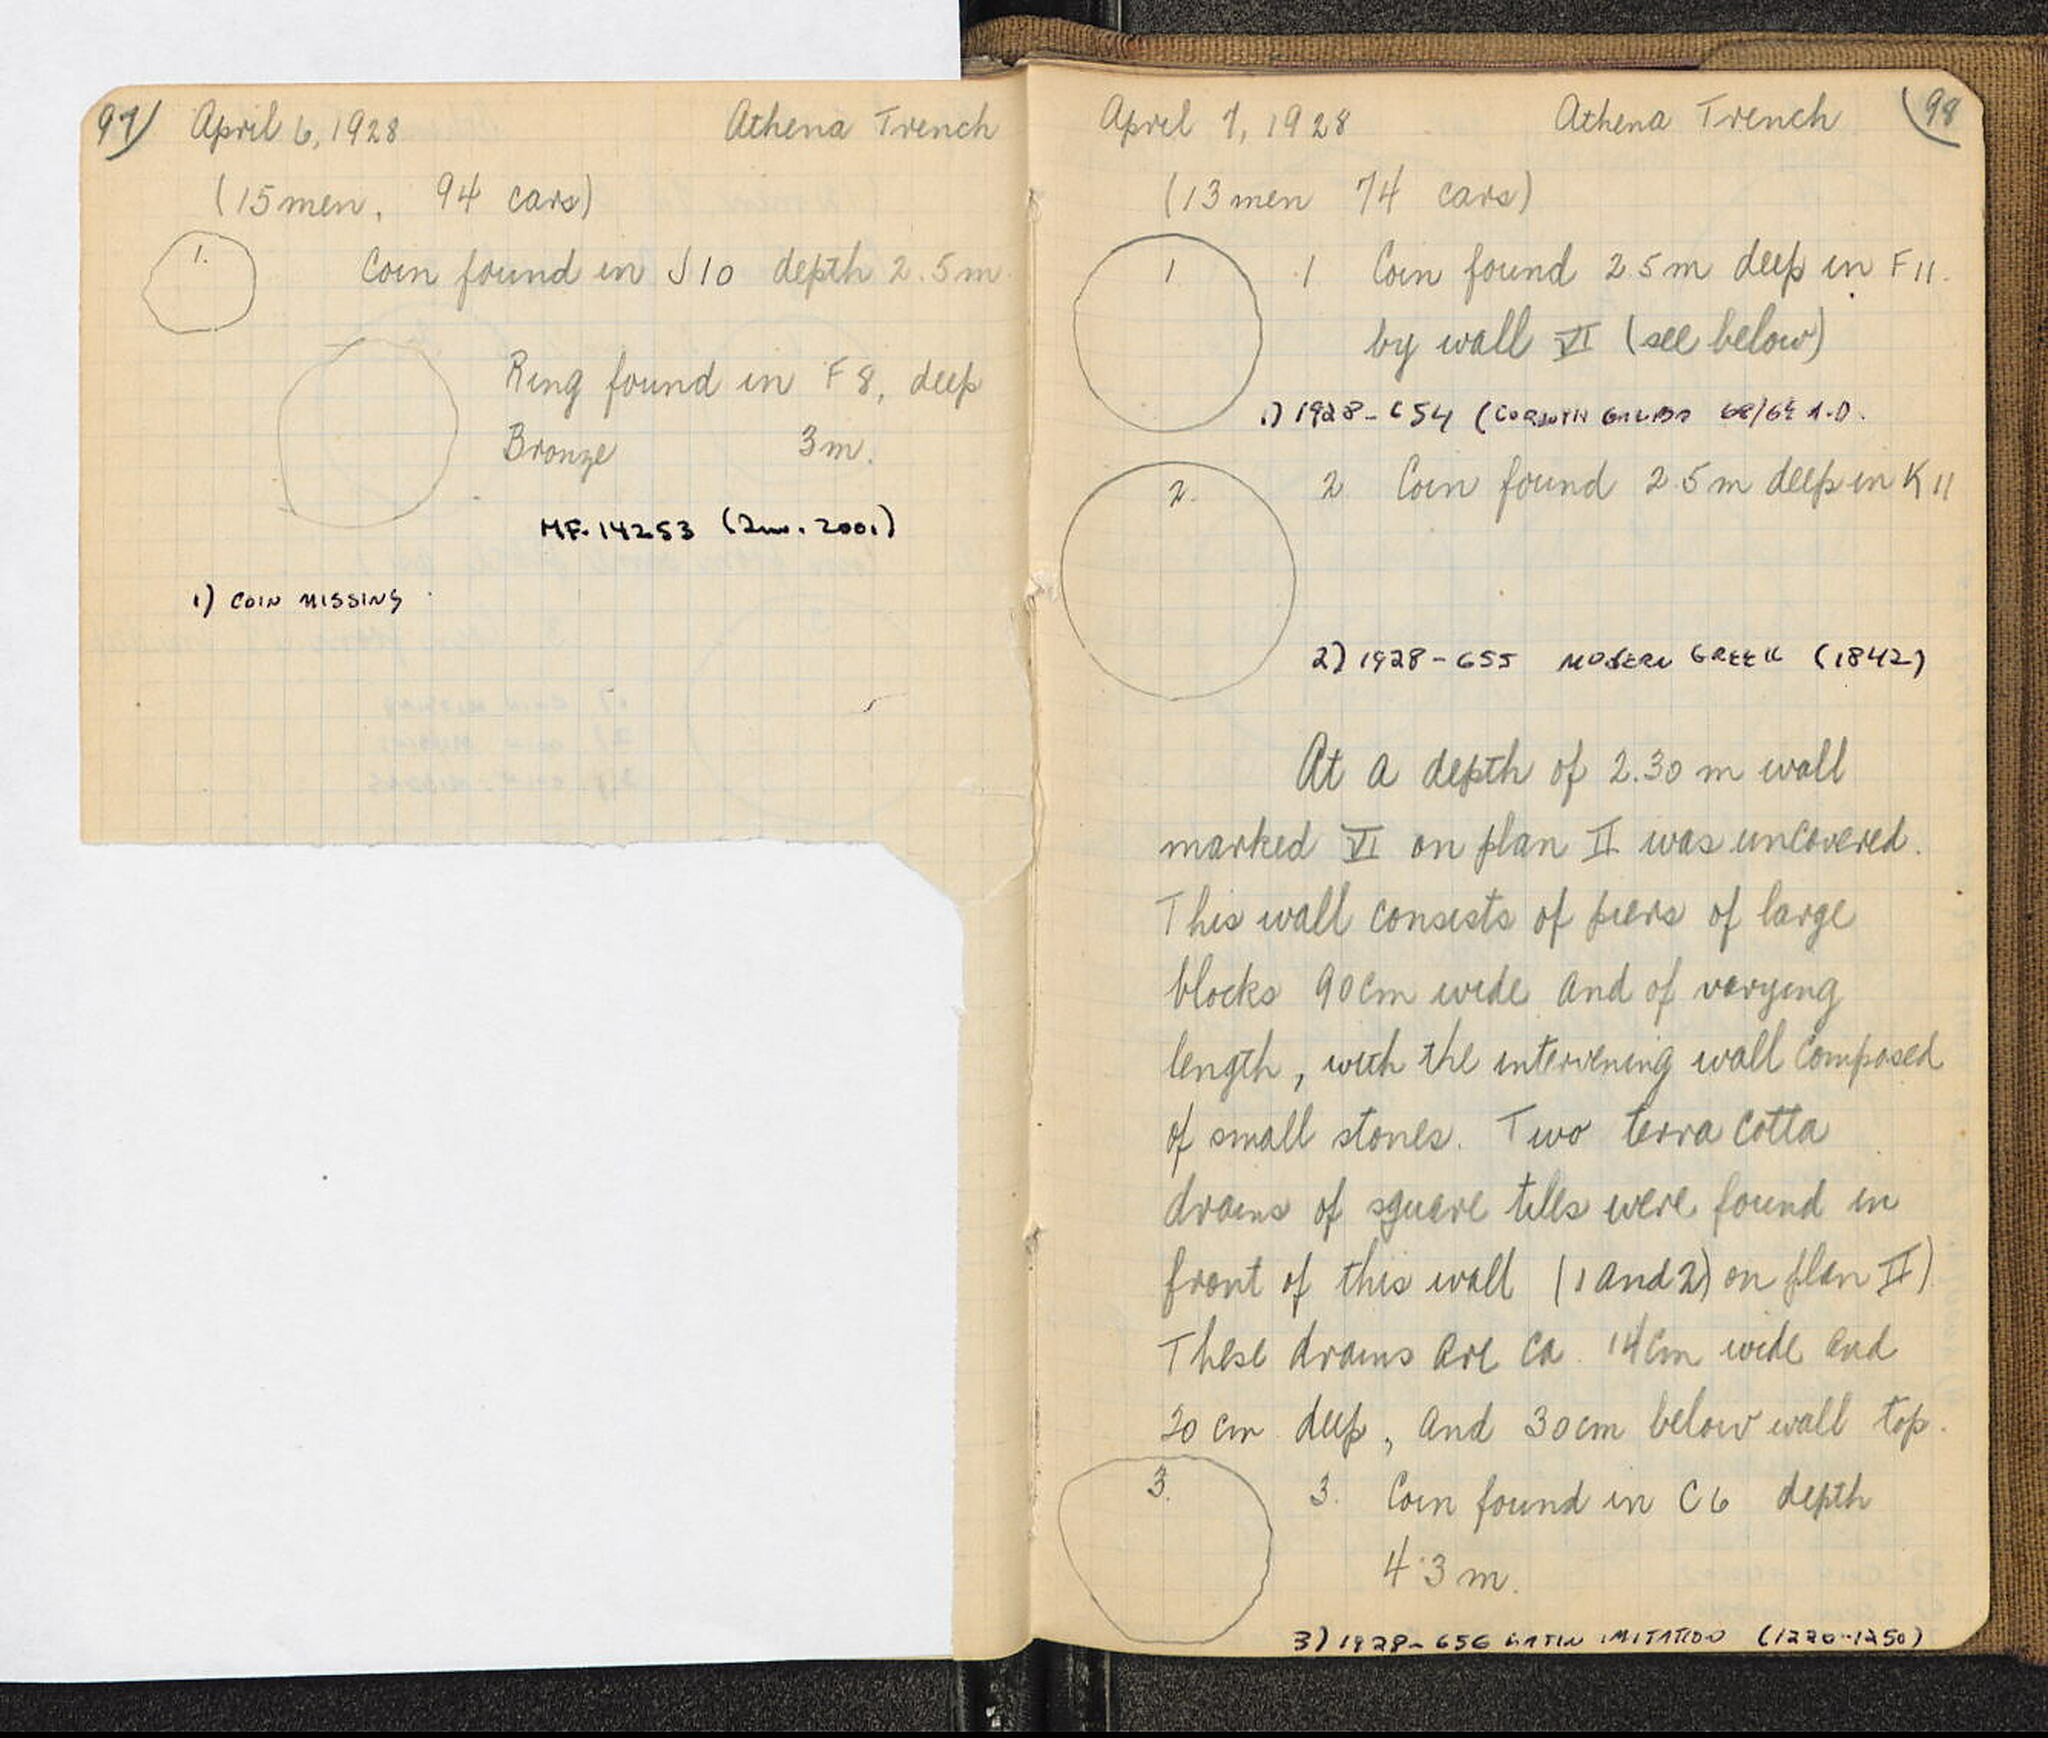 97) April 6, 1928 Athena Trench
(15 men, 94 cars)
1. Coin found in J 10 depth 2.5 m
Ring found in F 8, deep
Bronze 3 m.
MF. 14253 (Inv. 2001)
1) COIN MISSING
April 7, 1928 Athena Trench (98
(13 men 74 cars)
1 1 Coin found 2.5 m deep in F 11.
by wall VI (see below)
1) 1928-654 (CORINTH GALBA 68/69 A.D.
2. 2 Coin found 2.5 m deep in K 11
2) 1928-655 MODERN GREEK (1842)
At a depth of 2.30 m wall
marked VI on plan II was uncovered.
This wall consists of piers of large
blocks 90 cm wide and of varying
length, with the intervening wall composed
of small stones. Two terra cotta
drains of square tiles were found in
front of this wall (1 and 2) on plan II)
These drains are ca. 14 cm wide and
20 cm deep, and 30 cm below wall top.
3. 3. Coin found in C 6 depth
4.3 m.
3) 1928-656 LATIN IMITATION (1220-1250)